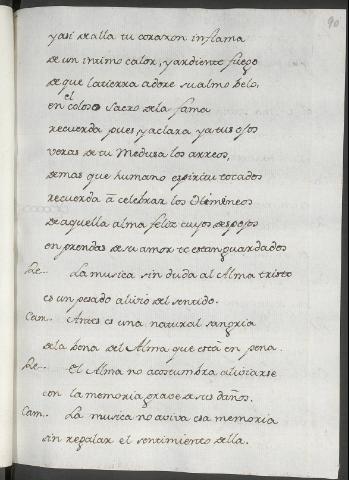 90
y asi de alla tu corazon inflama
de un intimo calor, y ardiente fuego
de que la tierra adore su almo Delo,
en el coloso sacro de la fama
recuerda pues, y aclara ya tus ojos
veras de tu Medusa los arreos,
demas que humano espiritu tocados
recuerda â celebrar los Himineos
de aquella alma feliz cuyos despojos
en prendas de su amor te estan guardados
Le... La musica sin duda al Alma triste
es un pesado alivio del sentido.
Cam.. Antes es una natural sangria
de la bena del Alma que está en pena.
Le... El Alma no acostumbra aliviarse
con la memoria grave de sus daños.
Cam.. La musica no aviva esa memoria
sin regalar el sentimiento della.